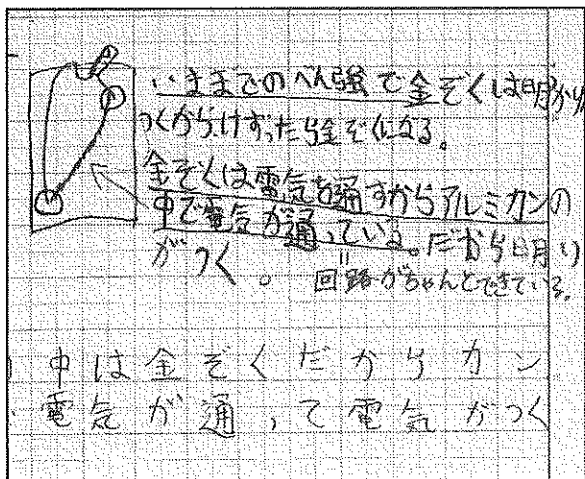 いままでのべん強で金ぞくは明かり
つくからけずったら金ぞくになる。
金ぞくは電気を通すからアルミカンの
中で電気が通っている。だから明り
がつく。 回路がちゃんとできている。
中は金ぞくだからカン
電気が通って電気がつく